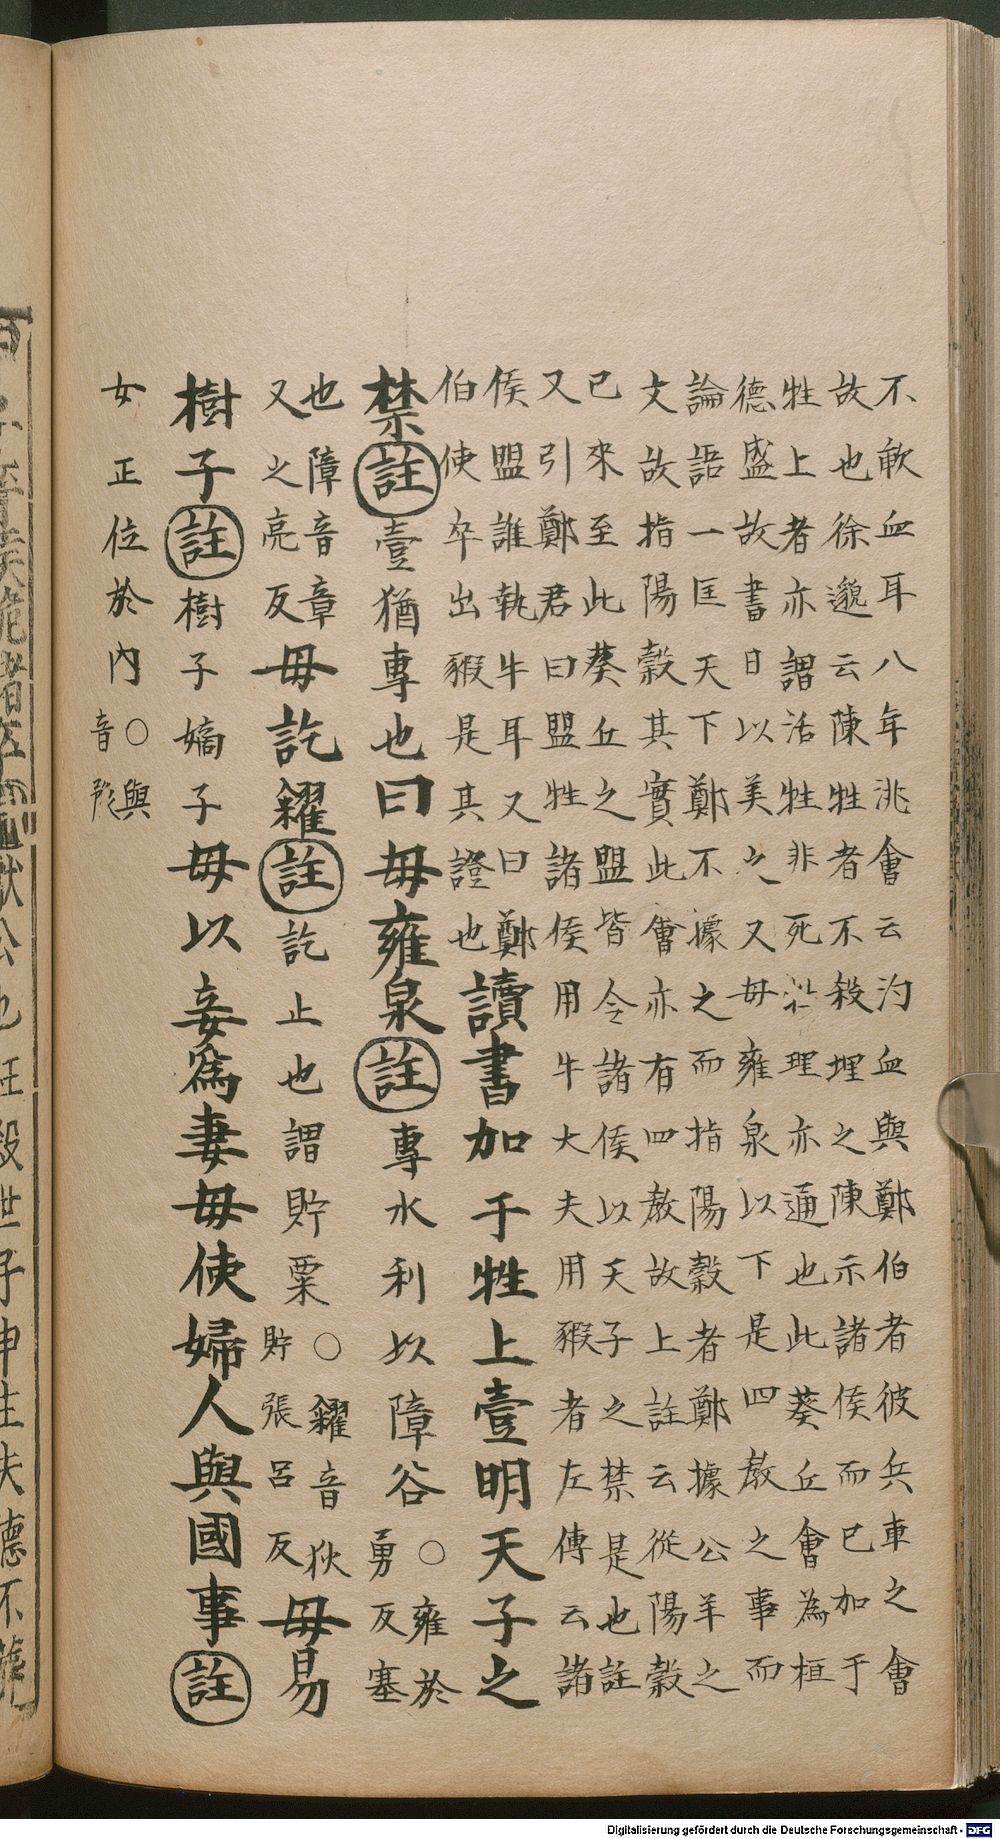 不歃血耳八年洮會云汋血與鄭伯者彼兵車之會
故也徐邈云陳牲者不殺埋之陳示諸侯而已加于
牲上者亦謂活牲非死牲理亦通也此葵丘會為桓
德盛故書日以美之又毋雍泉以下是四教之事而
論語一匡天下鄭不據之而指陽穀者鄭據公羊之
文故指陽穀其實此會亦有四教故上註云從陽穀
已來至此葵丘之盟皆令諸侯以天子之禁是也註
又引鄭君曰盟牲諸侯用牛大夫用豭者左傳云諸
侯盟誰執牛耳又曰鄭
伯使卒出豭是其證也
讀書加于牲上壹明天子之
禁註壹猶專也曰毋雍泉註專水利以障谷○雍於
勇反塞
也障音章
又之亮反
毋訖糴註訖止也謂貯粟○糴音狄
貯張呂反
毋易
樹子註樹子嫡子毋以妾爲妻毋使婦人與國事註
女正位於內○與
音豫
獻公也枉殺世子申生失德不葬
Digitalisierung gefördert durch die Deutsche Forschungsgemeinschaft - DFG